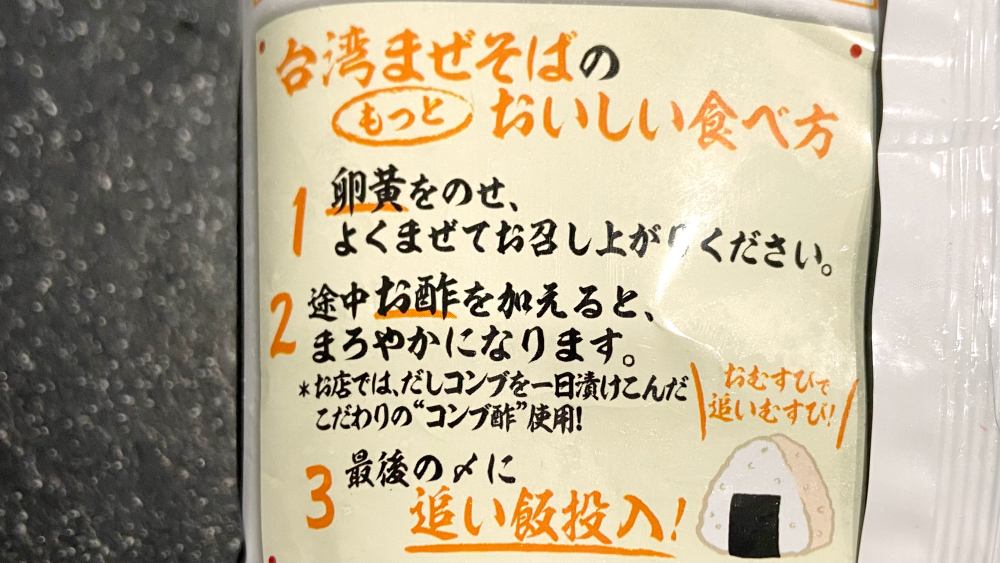 台湾まぜそばの
もっと おいしい食べ方
1 卵黄をのせ、
よくまぜてお召し上がりください。
2 途中お酢を加えると、
まろやかになります。
*お店では、だしコンブを一日漬けこんだ
こだわりの"コンブ酢"使用!
おむすびで
追いむすび!
3 最後の〆に
追い飯投入!